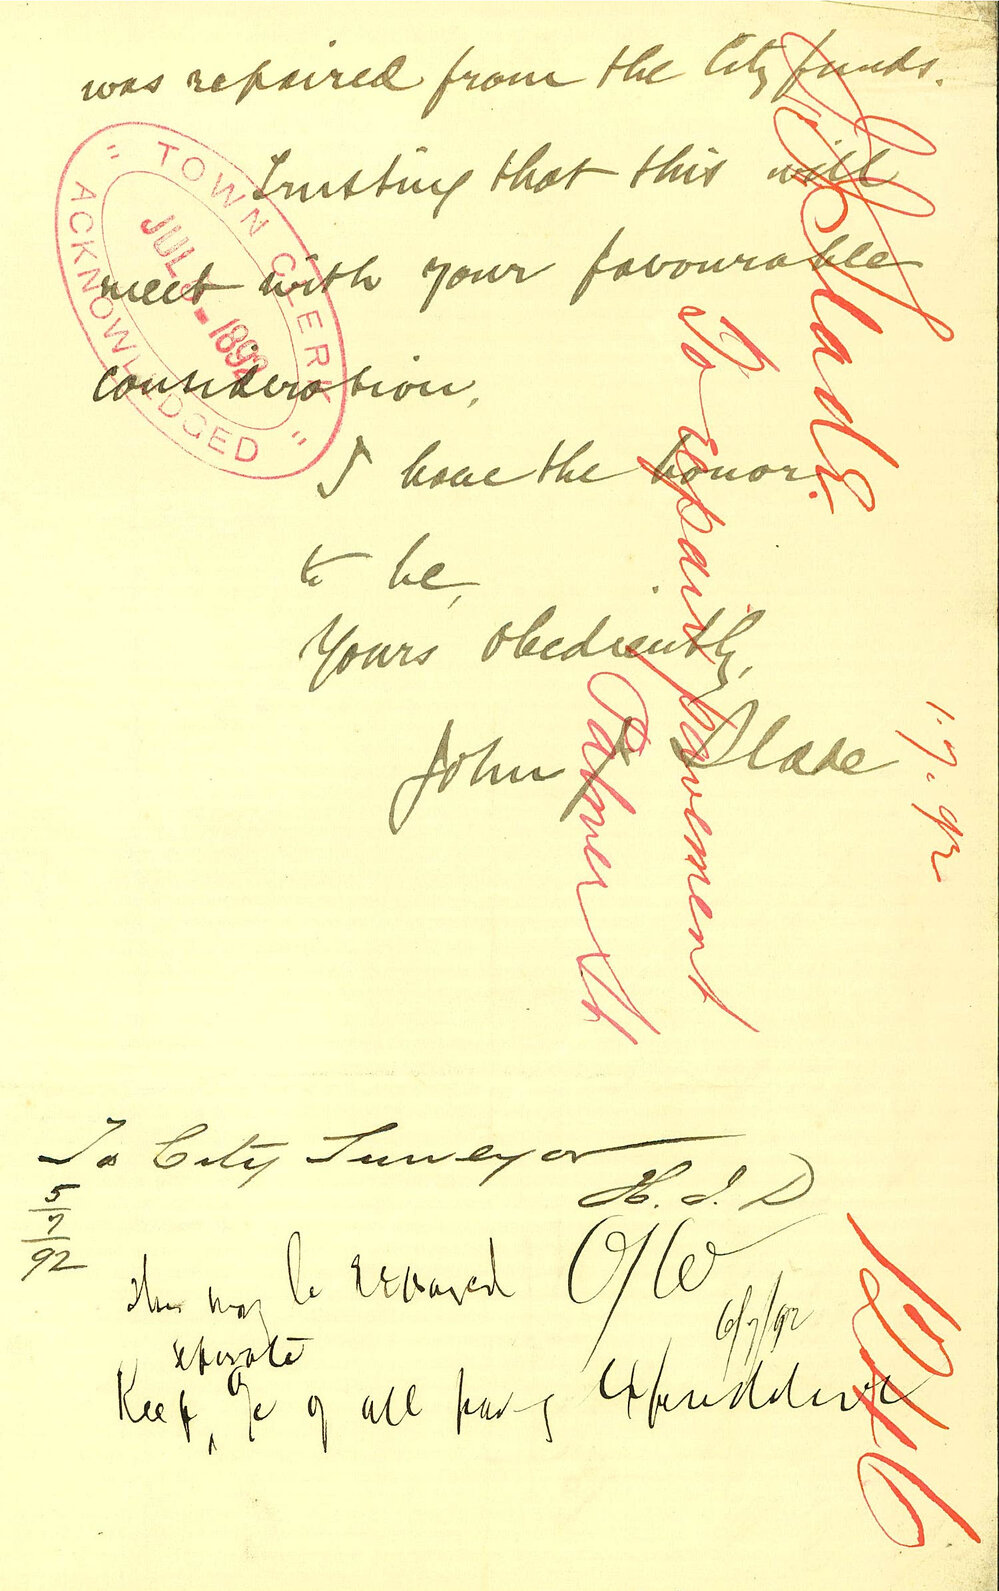 was repaired from the City funds.
Trusting that this will
meet with your favourable
consideration.
I have the honor
to be,
Yours obediently,
John F Slade
" TOWN CLERK "
ACKNOWLEDGED
JUL 5 - 1892
J F Slade.
To repair pavement
Palmer St
1.7.92
To City Surveyor
H. J. D
5
7
92
This may be repaired
6/7/92
separate
Keep a/c of all paving Expenditure
1246